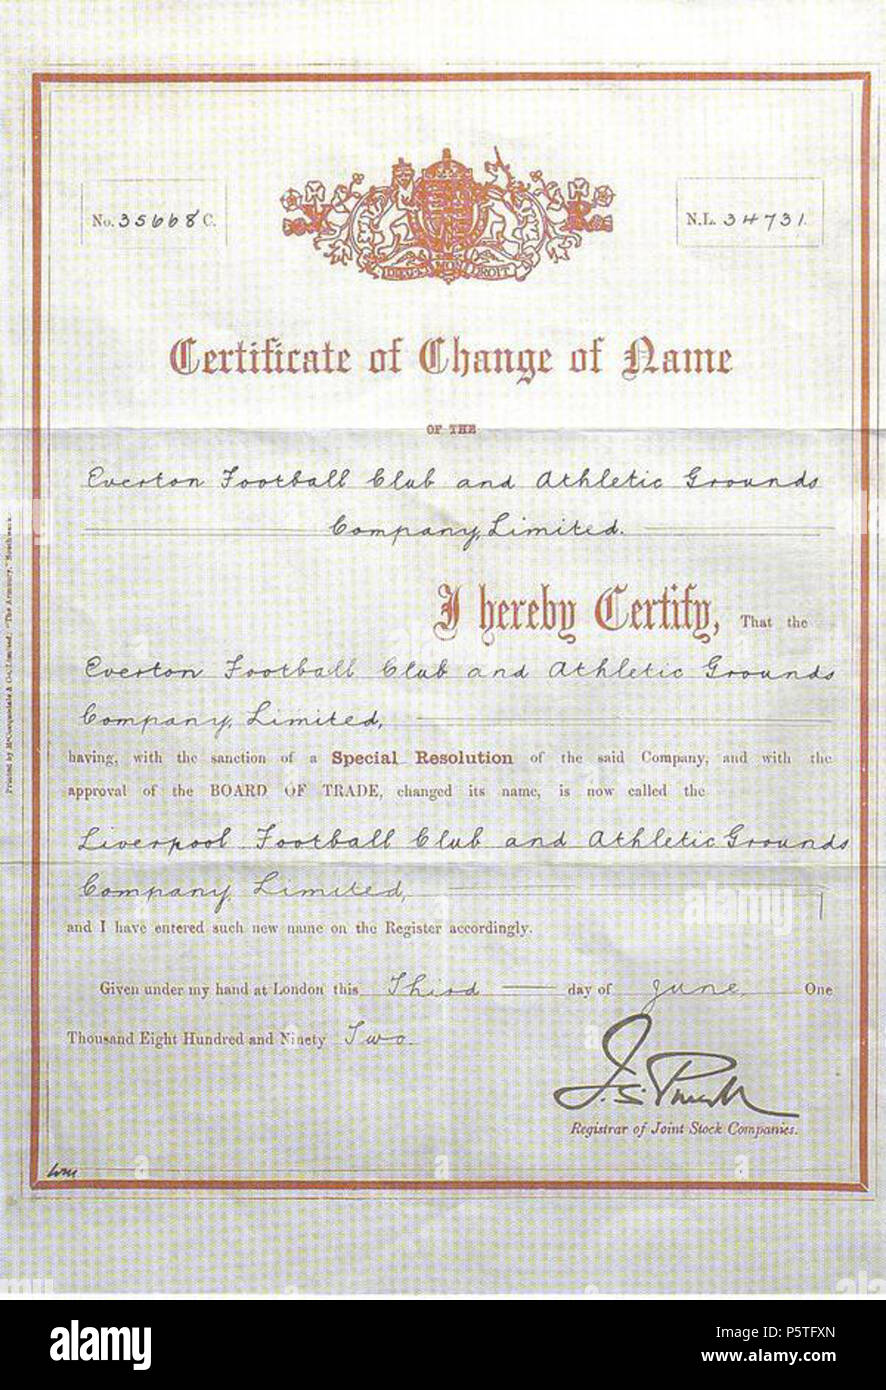 No. 35668 C.
N.L. 34731.
DIEU ET MON DROIT
Certificate of Change of Name
OF THE
Everton Football Club and Athletic Grounds
Company, Limited.
I hereby Certify, That the
Everton Football Club and Athletic Grounds
Company, Limited,
having, with the sanction of a Special Resolution of the said Company, and with the
approval of the BOARD OF TRADE, changed its name, is now called the
Liverpool Football Club and Athletic Grounds
Company, Limited,
and I have entered such new name on the Register accordingly.
Given under my hand at London this Third day of June One
Thousand Eight Hundred and Ninety Two.
J. S. Purcell
Registrar of Joint Stock Companies.
Printed by McCorquodale & Co., Limited, "The Armoury," Southwark.
alamy
alamy
Image ID: P5TFXN
www.alamy.com